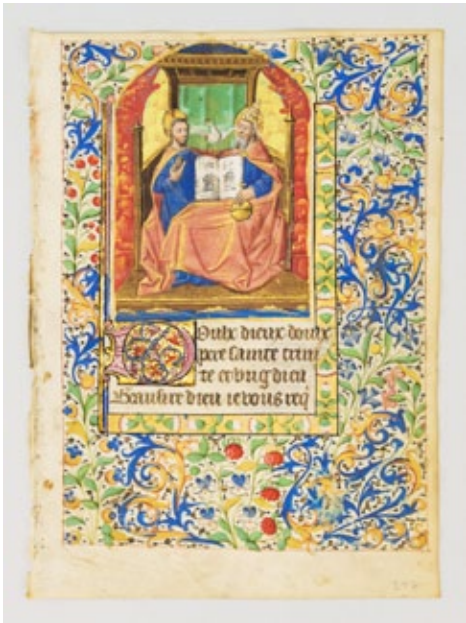 Doulx dieux doulx
pere sainte trini
te et ung dieu
Biau sire dieu ie vous req